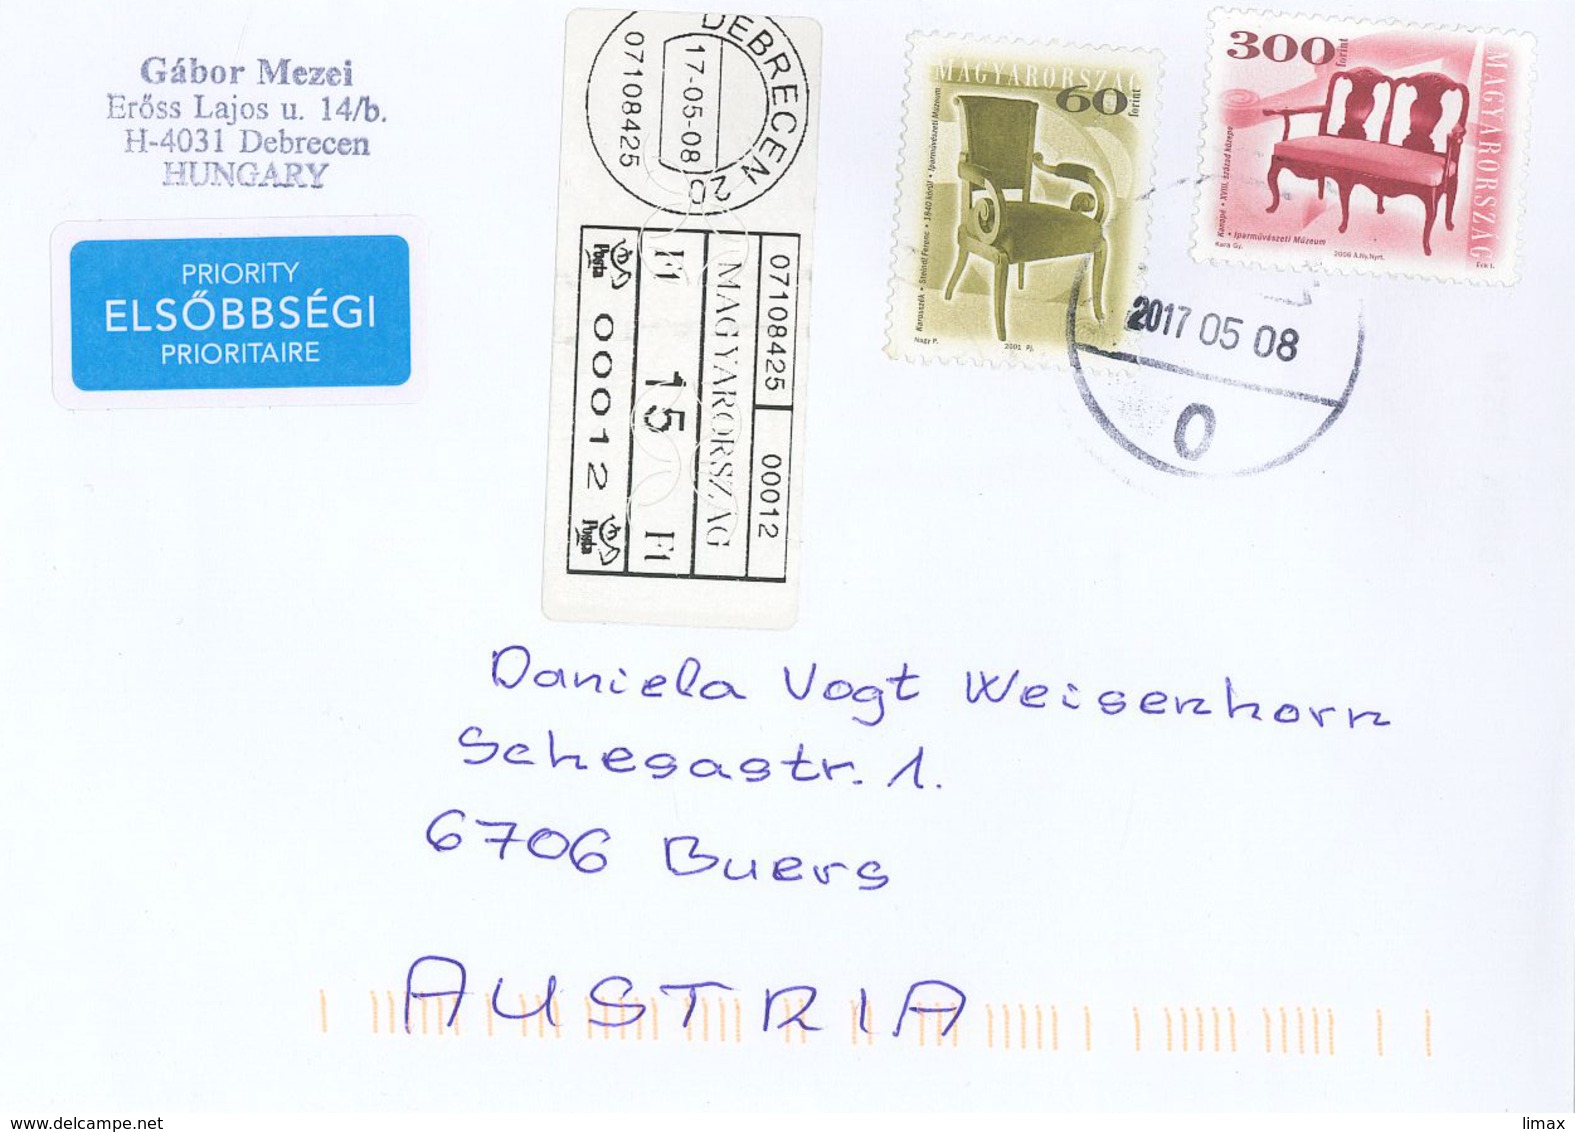 Gábor Mezei
Erőss Lajos u. 14/b.
H-4031 Debrecen
HUNGARY
PRIORITY
ELSŐBBSÉGI
PRIORITAIRE
DEBRECEN 20
17-05-08
07108425
07108425 00012
MAGYARORSZÁG
Ft 15 Ft
Posta 00012 Posta
MAGYARORSZÁG
60 forint
Karosszék • Steindl Ferenc • 1840 körül • Iparművészeti Múzeum
Nagy P. 2001 Pj.
300 forint
MAGYARORSZÁG
Kanapé • XVIII. század közepe • Iparművészeti Múzeum
Kara Gy. 2006 A.Ny.Nyrt. Éck I.
2017 05 08
0
Daniela Vogt Weisenhorn
Schesastr. 1.
6706 Buers
AUSTRIA
www.delcampe.net
limax